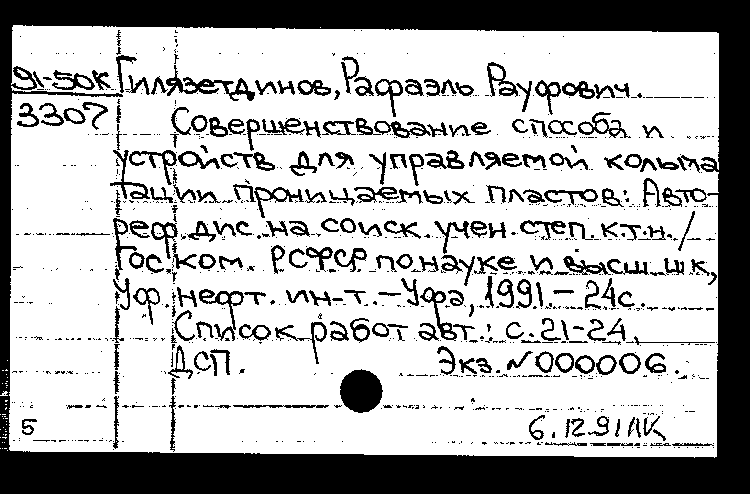 91-50К Гилязетдинов, Рафаэль Рауфович.
3307 Совершенствование способа и
устройств для управляемой кольма
тации проницаемых пластов: Авто-
реф. дис. на соиск. учен. степ. к.т.н. /
Гос. ком. РСФСР по науке и высш. шк,
Уф. нефт. ин-т. – Уфа, 1991. – 24с.
Список работ авт.: с. 21-24.
ДСП. Экз. N000006.
5 6.12.91 ЛК